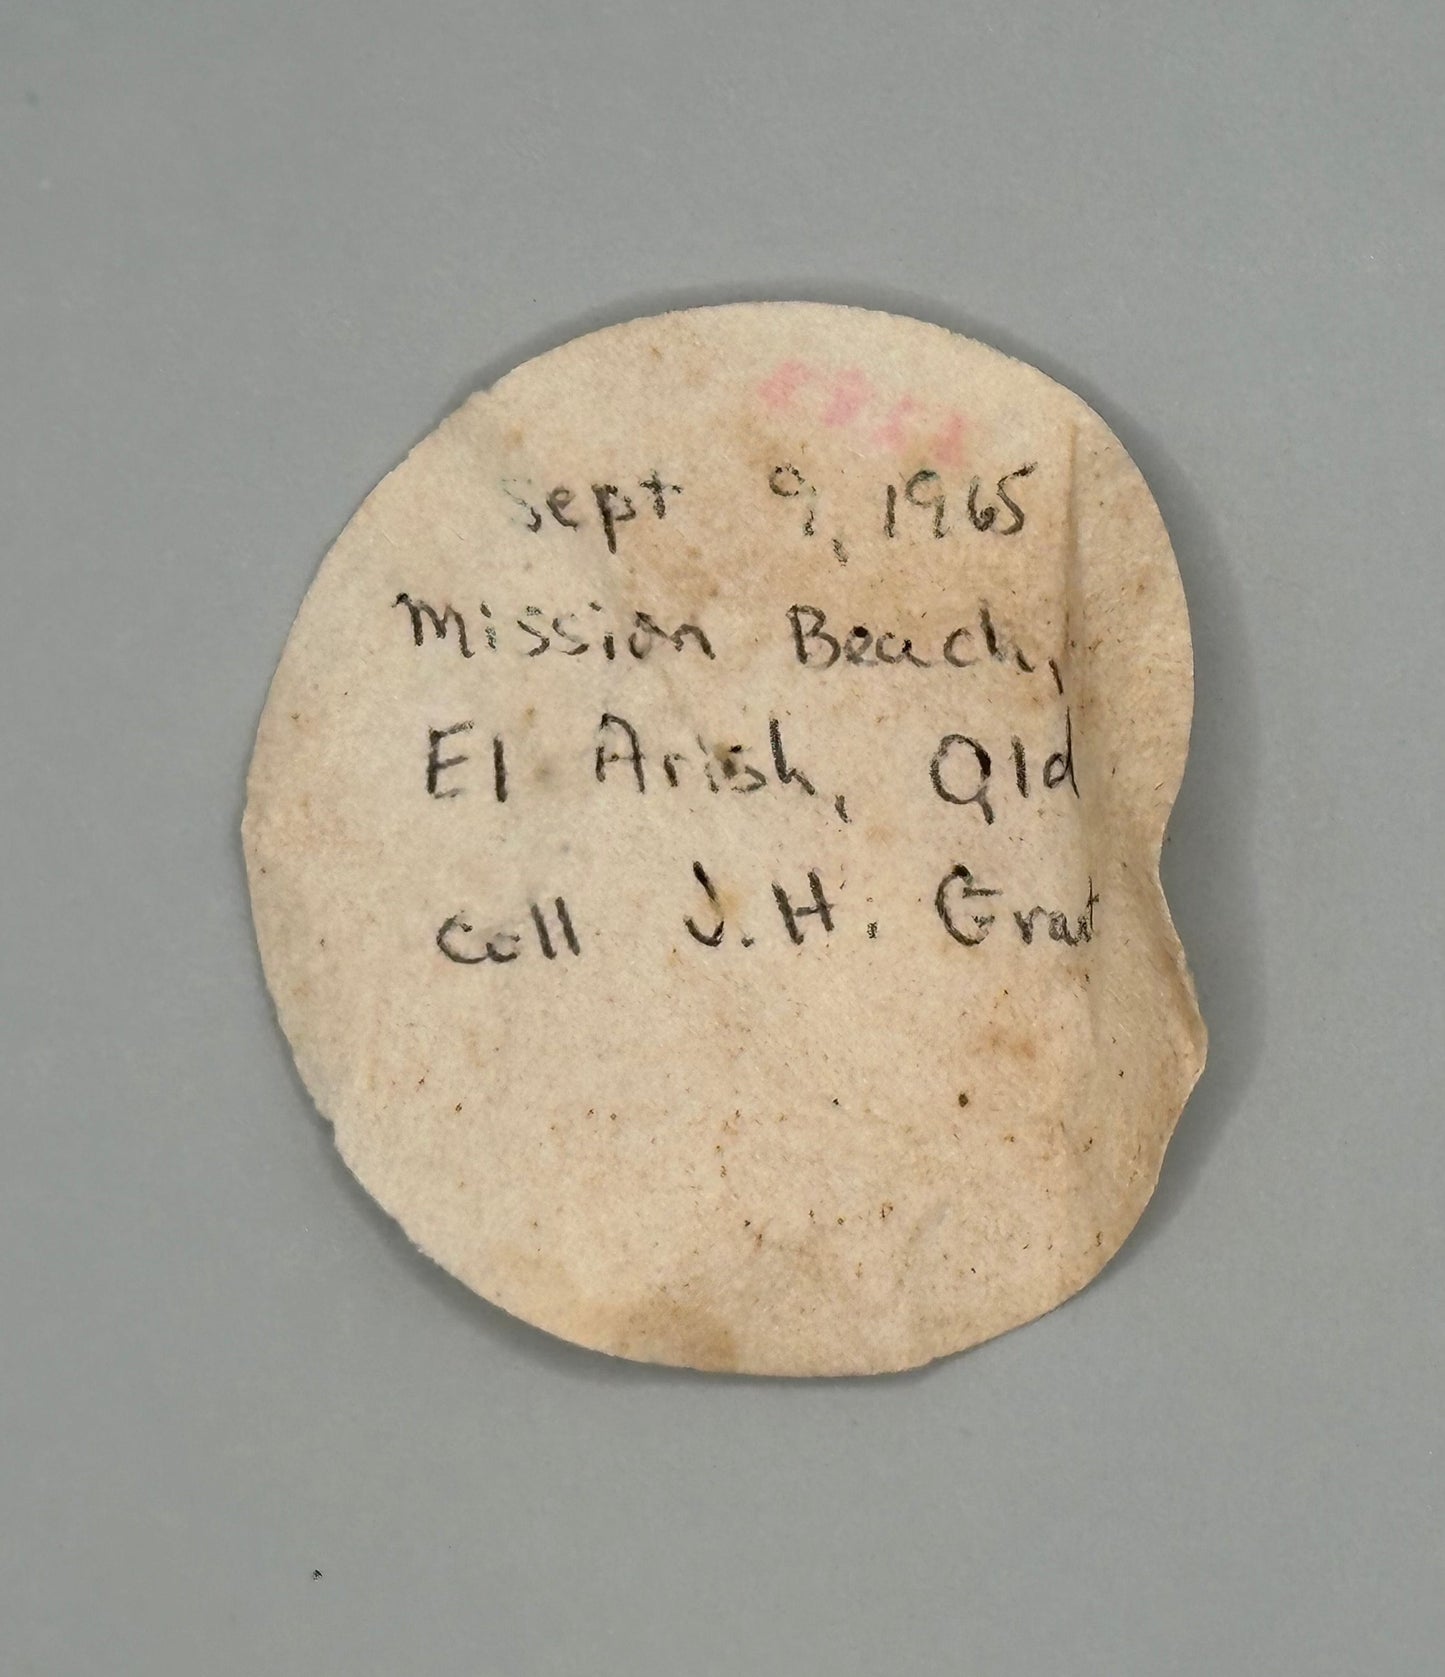 Sept 9, 1965
Mission Beach,
El Arish, Qld
coll J.H. Grant